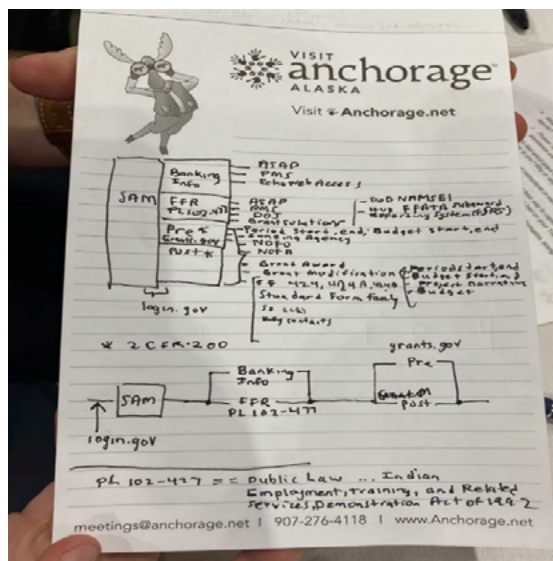 VISIT
anchorage
ALASKA
Visit Anchorage.net
SAM
Banking
Info
ASAP
PMS
Echo Web Access
FFR
PL 102-477
ASAP
PMS
DOJ
Grant Solutions
DOD NAMSEI
FFATA Subaward
Reporting System (FSRS)
Pre *
Grants.gov
Period Start, end, Budget Start, end
Funding Agency
NOFO
NOFA
Post *
Grant Award
Grant Modification
Period Start, end
Budget Start, end
Project Narrative
Budget
SF 424, 424A,
Standard Form Family
Key contacts
login.gov
* 2 CFR.200
SAM
login.gov
Banking
Info
FFR
PL 102-477
grants.gov
Pre
Post
PL 102-427 == Public Law ... Indian
Employment, Training, and Related
Services, Demonstration Act of 1992
meetings@anchorage.net | 907-276-4118 | www.Anchorage.net